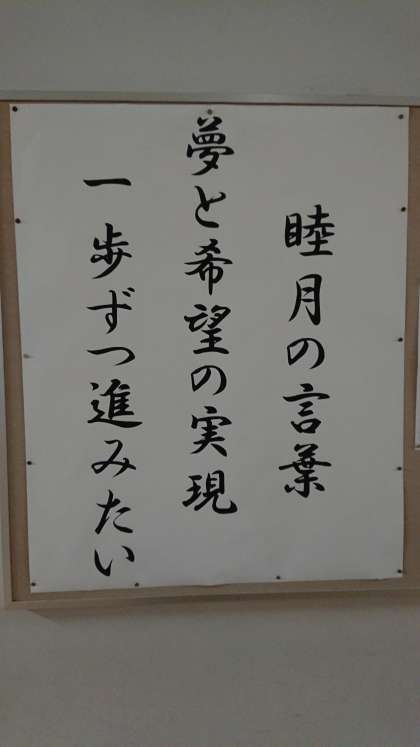 睦月の言葉
夢と希望の実現
一歩ずつ進みたい